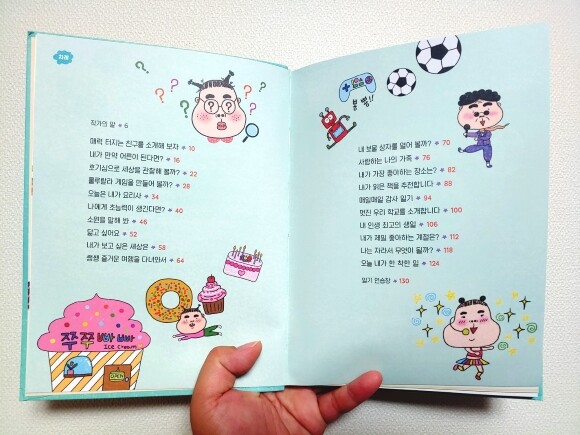 차례
작가의 말 6
매력 터지는 친구를 소개해 보자 10
내가 만약 어른이 된다면? 16
호기심으로 세상을 관찰해 볼까? 22
룰루랄라 게임을 만들어 볼까? 28
오늘은 내가 요리사 34
나에게 초능력이 생긴다면? 40
소원을 말해 봐 46
닮고 싶어요 52
내가 보고 싶은 세상은 58
쌩쌩 즐거운 여행을 다녀와서 64
쭈쭈빠빠
Ice Cream
OPEN
붕 빵!!
내 보물 상자를 열어 볼까? 70
사랑하는 나의 가족 76
내가 가장 좋아하는 장소는? 82
내가 읽은 책을 추천합니다 88
매일매일 감사 일기 94
멋진 우리 학교를 소개합니다 100
내 인생 최고의 생일 106
내가 제일 좋아하는 계절은? 112
나는 자라서 무엇이 될까? 118
오늘 내가 한 착한 일 124
일기 연습장 130